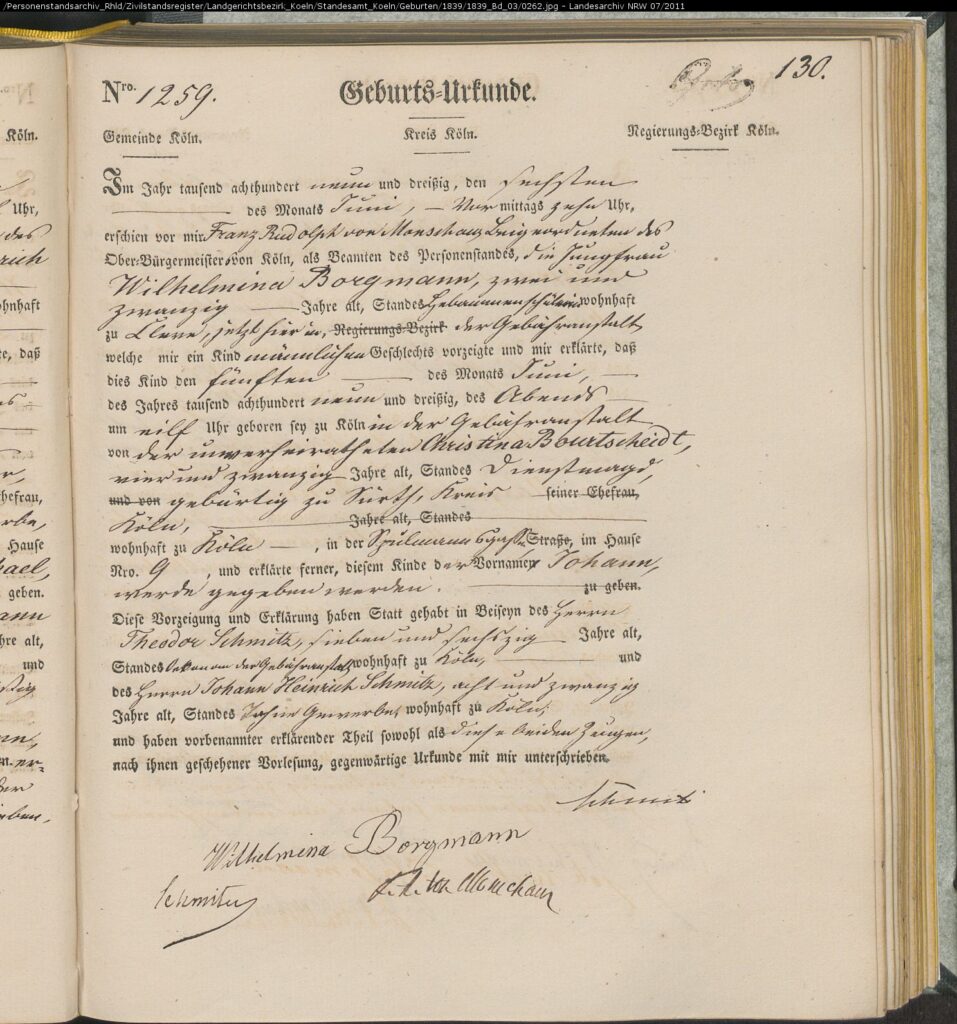 /Personenstandsarchiv_Rhld/Zivilstandsregister/Landgerichtsbezirk_Koeln/Standesamt_Koeln/Geburten/1839/1839_Bd_03/0262.jpg - Landesarchiv NRW 07/2011
130.
Nro. 1259. Geburts-Urkunde.
Gemeinde Köln. Kreis Köln. Regierungs-Bezirk Köln.
Im Jahr tausend achthundert neun und dreißig, den sechsten
des Monats Juni, Vor mittags zehn Uhr,
erschien vor mir Franz Rudolph von Monschaw Beigeordneten des
Ober-Bürgermeisters von Köln, als Beamten des Personenstandes, die Jungfrau
Wilhelmina Borgmann, zwei und
zwanzig Jahre alt, Standes Hebammenschülerin wohnhaft
zu Cleve, jetzt hier in Regierungs-Bezirk der Gebähranstalt
welche mir ein Kind männlichen Geschlechts vorzeigte und mir erklärte, daß
dies Kind den fünften des Monats Juni,
des Jahres tausend achthundert neun und dreißig, des Abends
um eilf Uhr geboren sey zu Köln in der Gebähranstalt
von der unverheiratheten Christina Bourtscheidt,
vier und zwanzig Jahre alt, Standes Dienstmagd,
und von gebürtig zu Sürth, Kreis seiner Ehefrau,
Köln, Jahre alt, Standes
wohnhaft zu Köln, in der Spulmannsgasse Straße, im Hause
Nro. 9, und erklärte ferner, diesem Kinde der Vornamen Johann,
werde gegeben werden. zu geben.
Diese Vorzeigung und Erklärung haben Statt gehabt in Beiseyn des Herrn
Theodor Schmitz, sieben und sechszig Jahre alt,
Standes Oekonom der Gebähranstalt wohnhaft zu Köln, und
des Herrn Johann Heinrich Schmitz, acht und zwanzig
Jahre alt, Standes ohne Gewerbe, wohnhaft zu Köln;
und haben vorbenannter erklärender Theil sowohl als diese beiden Zeugen,
nach ihnen geschehener Vorlesung, gegenwärtige Urkunde mit mir unterschrieben.
Schmitz
Wilhelmina Borgmann
Schmitz
Köln.
Uhr,
des
rich
ohnhaft
te, daß
hefrau,
rbe,
Hause
ael,
geben.
ann
hre alt,
und